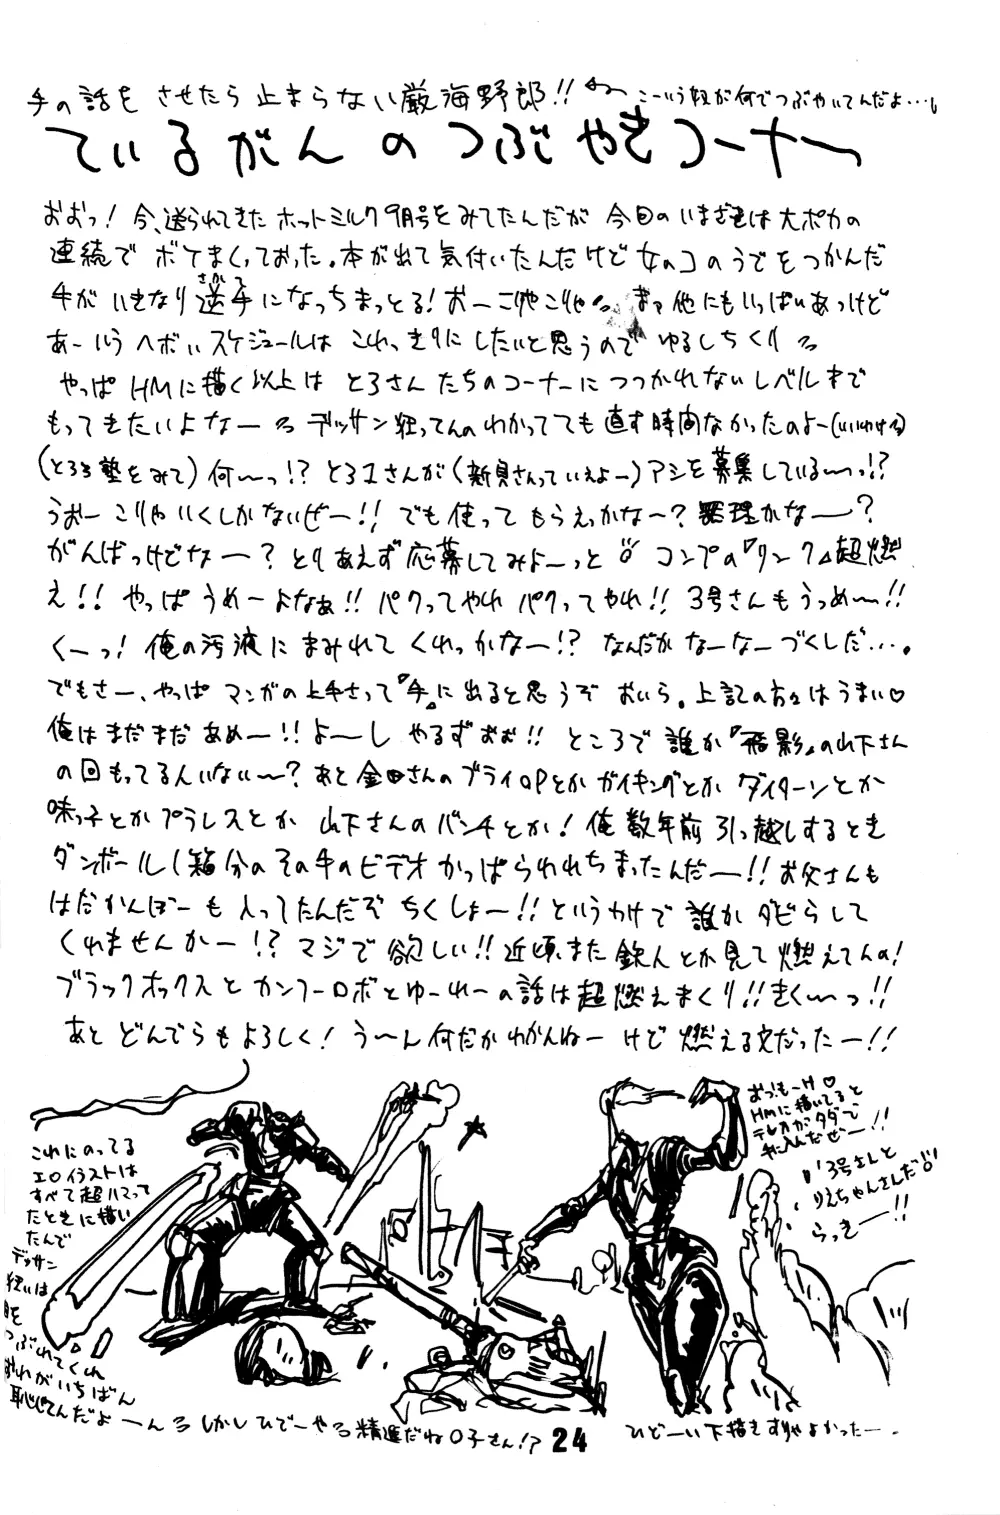 手の話をさせたら止まらない厳海野郎!! こーいう奴が何でつぶやいてんだよ…。
ているがんのつぶやきコーナー
おおっ!今、送られてきたホットミルク9月号をみてたんだが今回のいまざきは大ポカの
連続でボケまくっておった。本が出て気付いたんだけど女のコのうでをつかんだ
手がいきなり逆手になっちまっとる!おーこりゃこりゃ まァ他にもいっぱいあっけど
さかて
あーいうヘボいスケジュールはこれっきりにしたいと思うのでゆるしちくり
やっぱHMに描く以上はとろさんたちのコーナーにつつかれないレベルまで
もってきたいよなー デッサン狂ってんのわかってても直す時間なかったのよー(いいわける)
(とろろ塾をみて)何〜っ!?とろ1さんが(新貝さんっていえよー)アシを募集している〜っ!?
うおーこりゃいくしかないぜー!!でも使ってもらえっかな〜?無理かなー?
がんばっけどなー?とりあえず応募してみよーっと コンプの『リンク』超燃
え!!やっぱうめーよなぁ!!パクってやれパクってやれ!!3号さんもうっめ〜!!
くーっ!俺の汚液にまみれてくれっかなー!?なんだかなーなーづくしだ…。
でもさー、やっぱマンガの上手さって『手』に出ると思うぞおいら。上記の方々はうまい♡
俺はまだまだあめー!!よ〜しやるずおお!!ところで誰か『飛影』の山下さん
の回もってる人いない〜?あと金田さんのブライOPとかガイキングとかダイターンとか
味っ子とかプラレスとか山下さんのバンチとか!俺数年前引っ越しするとき
ダンボール1箱分のその手のビデオかっぱらわれちまったんだー!!お父さんも
はだかんぼーも入ってたんだぞちくしょー!!というわけで誰かダビらして
くれませんかー!?マジで欲しい!!近頃また鉄人とか見て燃えてんの!
ブラックオックスとカンフーロボとゆーれーの話は超燃えまくり!!きく〜っ!!
あとどんでらもよろしく!う〜ん何だかわかんねーけど燃える文だったー!!
これにのってる
エロイラストは
すべて超ハマって
たときに描い
たんで
デッサン
狂いは
目を
つぶれてくれ
おれがいちばん
恥じてんだよーん しかしひでーやる精進だね〇子さん!?
24
おっ!もーH♡
HMに描いてると
テレカがタダで
手に入んだぜー!!
3号さんと
りえちゃんさんだ!!
らっきー!!
ひどーい下描きすりゃよかったー。